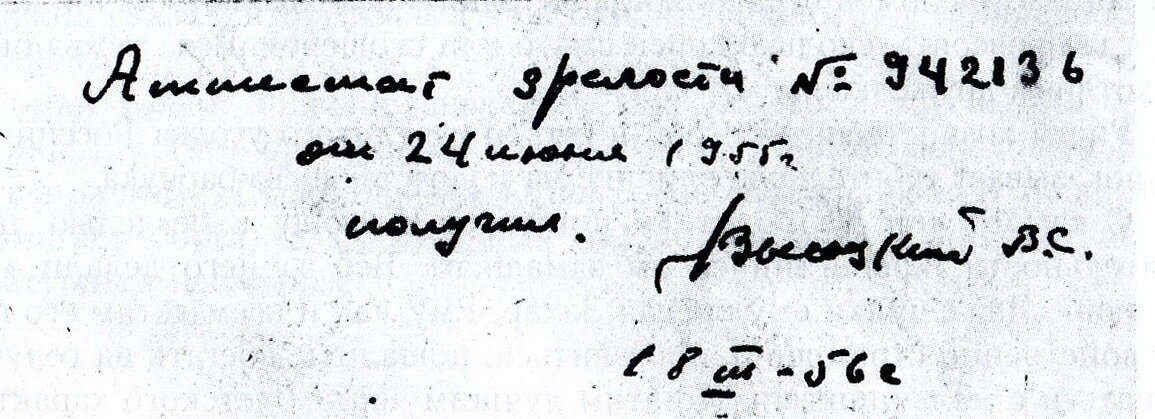 Аттестат зрелости № 942136
от 24 июня 1955г
получил.
Высоцкий В.С.
18 III-56г